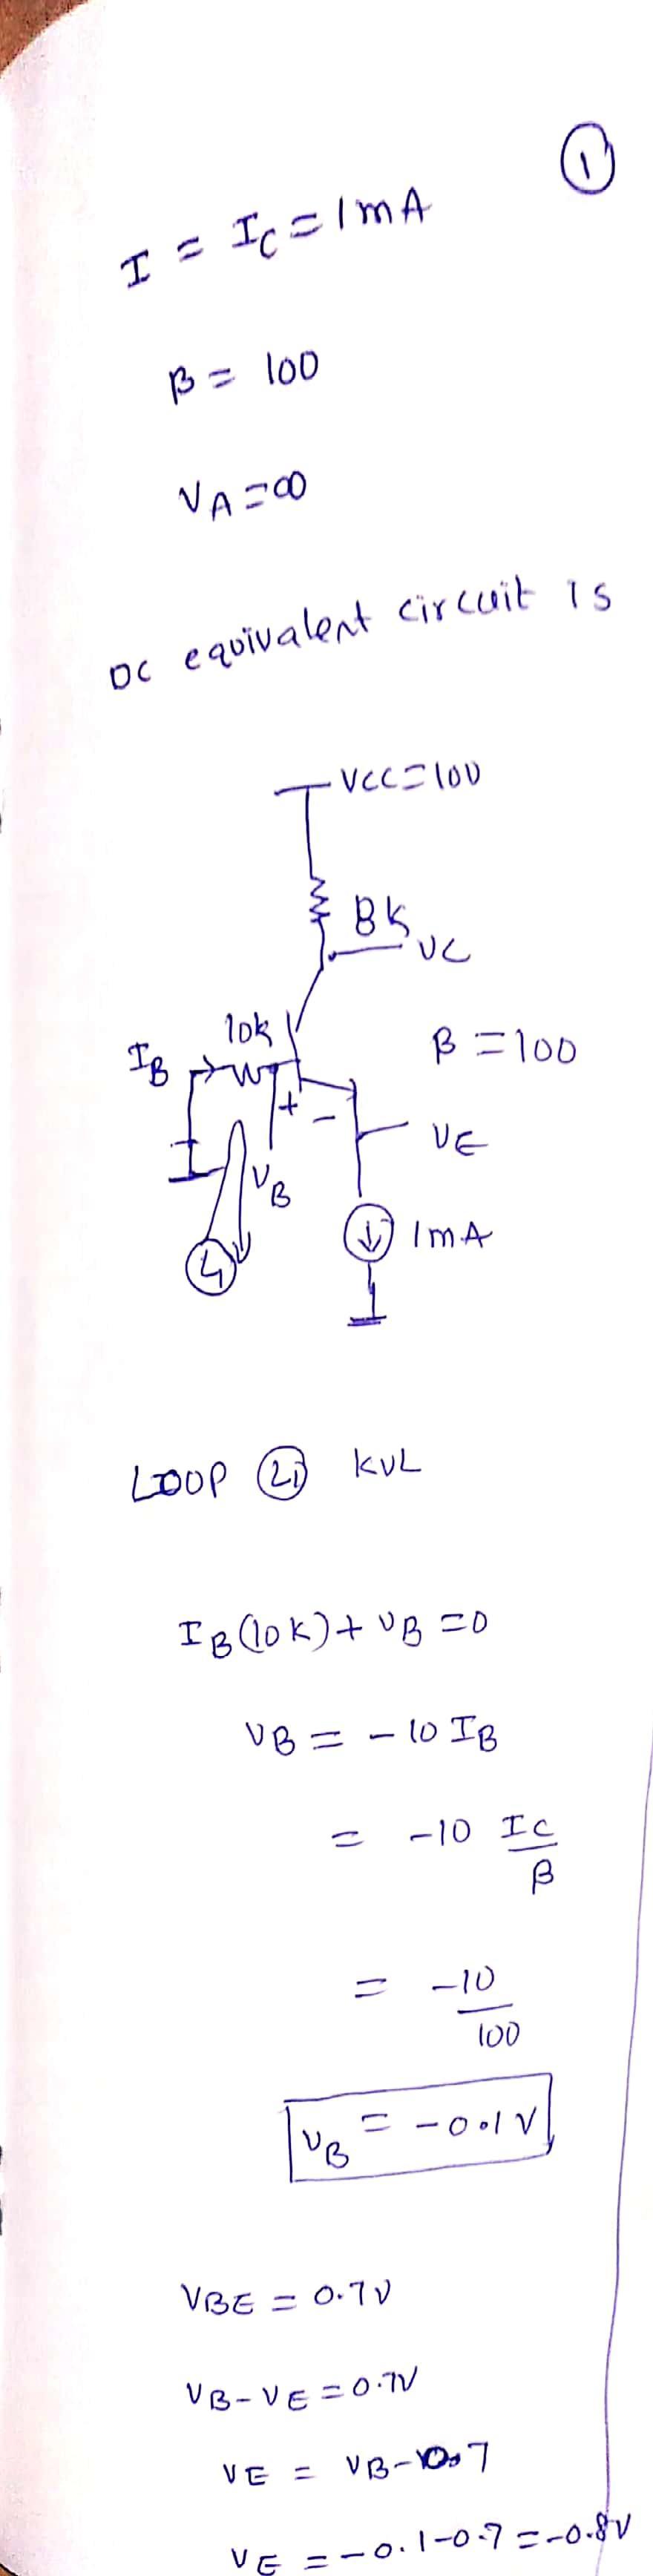 ①
I = IC = 1mA
β = 100
VA = ∞
DC equivalent circuit is
VCC = 10V
8K
VC
10k
IB
β = 100
+ -
VE
VB
L1
1mA
LOOP L1 KVL
IB(10K) + VB = 0
VB = -10 IB
= -10 IC/β
= -10/100
VB = -0.1V
VBE = 0.7V
VB - VE = 0.7V
VE = VB - 0.7
VE = -0.1-0.7 = -0.8V